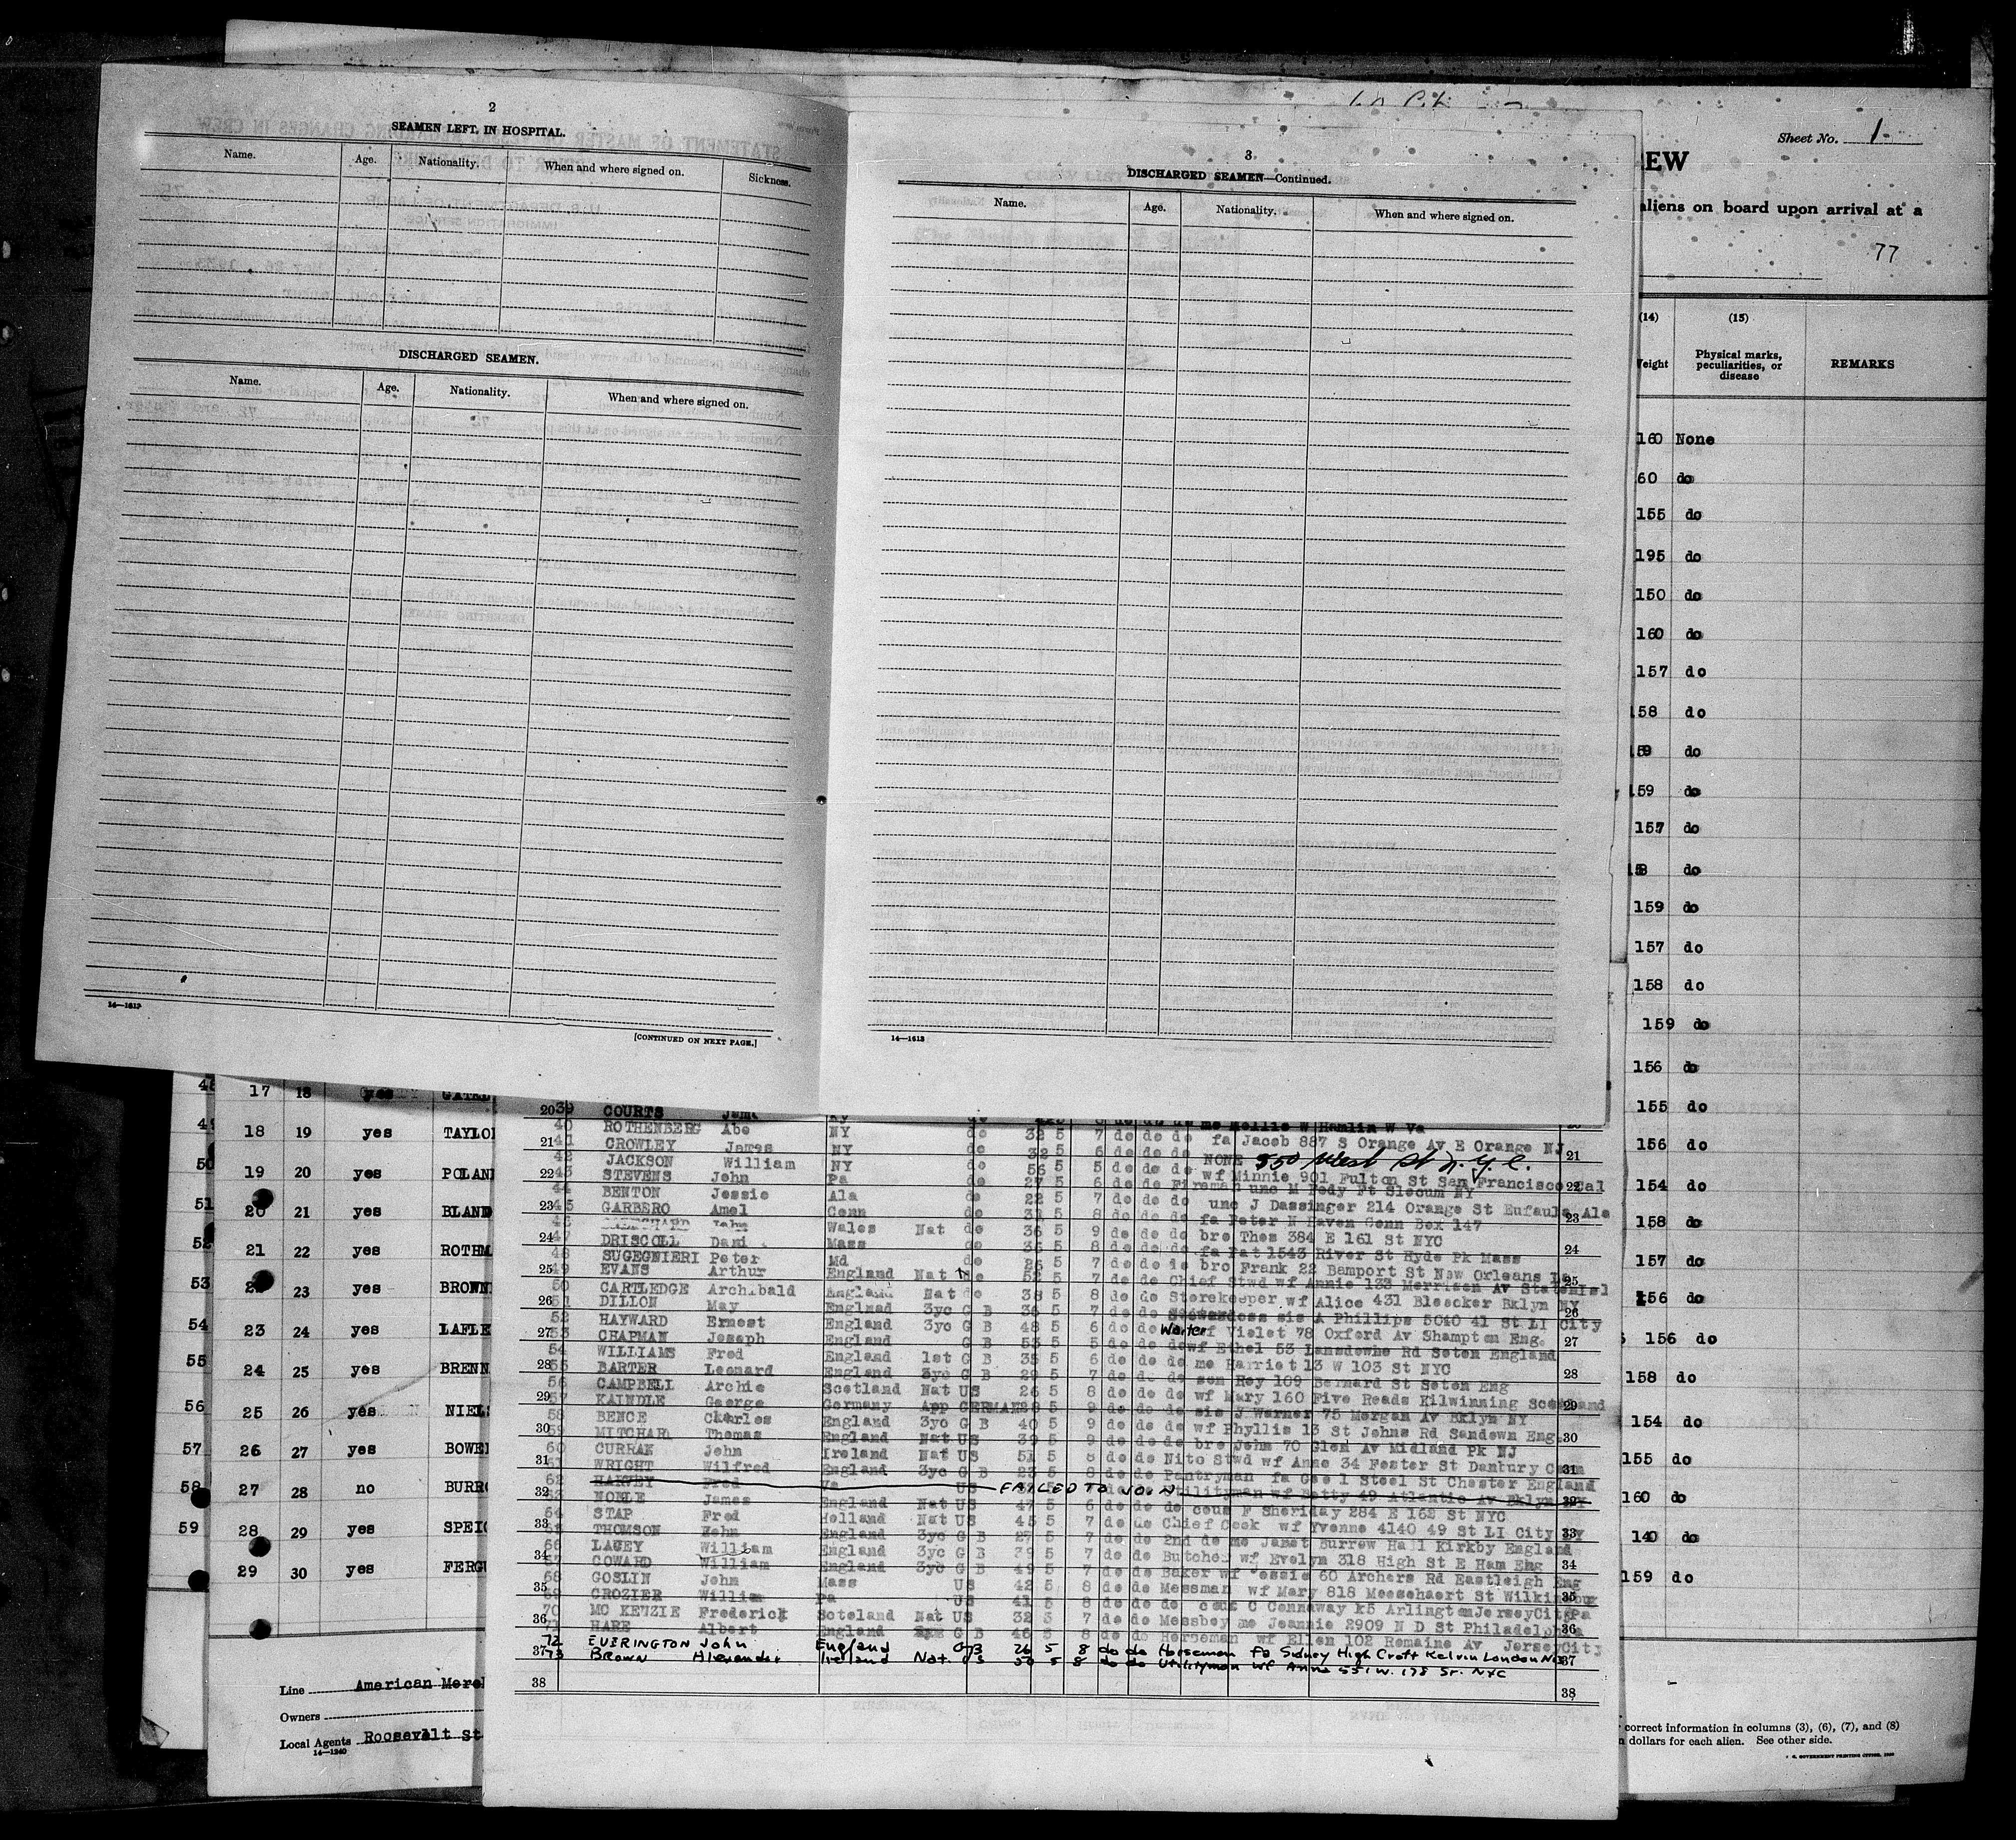 2
SEAMEN LEFT, IN HOSPITAL.
Name. Age. Nationality. When and where signed on. Sickness.
DISCHARGED SEAMEN.
Name. Age. Nationality. When and where signed on.
14—1613
[CONTINUED ON NEXT PAGE.]
3
DISCHARGED SEAMEN—Continued.
Name. Age. Nationality. When and where signed on.
14—1613
Sheet No. 1
EW
aliens on board upon arrival at a
77
(14) (15)
Weight Physical marks, peculiarities, or disease REMARKS
160 None
60 do
155 do
195 do
150 do
160 do
157 do
158 do
159 do
159 do
157 do
158 do
159 do
157 do
158 do
159 do
156 do
155 do
156 do
154 do
158 do
157 do
156 do
156 do
158 do
154 do
155 do
160 do
140 do
159 do
correct information in columns (3), (6), (7), and (8)
dollars for each alien. See other side.
48 17 18 yes
49 18 19 yes TAYLO
50 19 20 yes POLAN
51 20 21 yes BLAND
52 21 22 yes ROTHM
53 23 yes BROWN
54 23 24 yes LAFLE
55 24 25 yes BRENN
56 25 26 yes NIELS
57 26 27 yes BOWE
58 27 28 no BURR
59 28 29 yes SPEI
29 30 yes FERG
Line American Merch
Owners
Local Agents Roosevelt St
14—1240
20 39 COURTS
40 ROTHENBERG Abe NY do 32 5 7 do do do me Nellie W Hamlin W Va
21 41 CROWLEY James NY do 32 5 6 do do do fa Jacob 887 S Orange Av E Orange NJ 21
42 JACKSON William NY do 56 5 5 do do do NONE 550 West St N.Y.C.
22 43 STEVENS John Pa do 27 5 6 do do Fireman wf Minnie 901 Fulton St San Francisco Cal 22
44 BENTON Jessie Ala do 22 5 7 do do do unc M Fedy Ft Slocum NY
23 45 GARBERO Amel Conn do 31 5 8 do do do unc J Dassinger 214 Orange St Eufaula Ala 23
46 John Wales Nat do 36 5 9 do do do fa Peter N Haven Conn Box 147
24 47 DRISCOLL Mass do 36 5 8 do do do bro Thos 384 E 161 St NYC 24
48 SUGEGNIERI Peter Md do 26 5 7 do do do fa Pat 1543 River St Hyde Pk Mass
25 49 EVANS Arthur England Nat do 52 5 7 do do Chief Stwd bro Frank 22 Bamport St New Orleans La 25
50 CARTLEDGE Archibald England Nat do 38 5 8 do do Storekeeper wf Annie 133 Merrison Av StatenIsl
26 51 DILLON May England 3yc G B 36 5 7 do do Stewardess wf Alice 431 Bleecker Bklyn NY 26
52 HAYWARD Ernest England 3yc G B 48 5 6 do do Waiter sis A Phillips 5040 41 St LI City
27 53 CHAPMAN Joseph England G B 53 5 5 do do do wf Violet 78 Oxford Av Shampton Eng. 27
54 WILLIAMS Fred England 1st G B 35 5 6 do do do wf Ethel 53 Lansdowne Rd Soton England
28 55 BARTER Leonard England 3yc G B 29 5 7 do do do me Harriet 13 W 103 St NYC 28
56 CAMPBELL Archie Scotland Nat US 26 5 8 do do do son Roy 109 Bernard St Soton Eng
29 57 KAINDLE George Germany App GERMAN 28 5 9 do do do wf Mary 160 Five Roads Kilwinning Scotland 29
58 BENCE Charles England 3yc G B 40 5 9 do do do sis J Warner 75 Morgan Av Bklyn NY
30 59 MITCHAR Thomas England Nat US 39 5 9 do do do wf Phyllis 13 St Johns Rd Sandown Eng. 30
60 CURRAN John Ireland Nat US 51 5 8 do do Nite Stwd bro John 70 Glen Av Midland Pk NJ
31 61 WRIGHT Wilfred England 3yc G B 23 5 8 do do Pantryman wf Anne 34 Foster St Danbury Conn 31
62 HARVEY Fred Va US FAILED TO JOIN Utilityman fa Geo 1 Steel St Chester England
32 63 NOBLE James England Nat US 47 5 6 do do do wf Betty 49 Atlantic Av Bklyn NY 32
64 STAP Fred Holland Nat US 45 5 7 do do Chief Cook cous F Sheriday 284 E 162 St NYC
33 65 THOMSON John England 3yc G B 27 5 7 do do 2nd do wf Yvonne 4140 49 St LI City NY 33
66 LACEY William England 3yc G B 39 5 7 do do Butcher me Janet Burrow Hall Kirkby England
34 67 COWARD William England 3yc G B 49 5 7 do do Baker wf Evelyn 318 High St E Ham Eng 34
68 GOSLIN John Mass US 42 5 8 do do Messman wf Jessie 60 Archers Rd Eastleigh Eng
35 69 CROZIER William Pa US 41 5 8 do do do wf Mary 818 Meesehaert St Wilkinsbur 35
70 MC KENZIE Frederick Scotland Nat US 32 5 7 do do Messboy cous C Connaway k5 Arlington JerseyCity Pa
36 71 HARE Albert England G B 46 5 8 do do Horseman me Jeannie 2909 N D St Philadelphia 36
wf Ellen 102 Romaine Av JerseyCity
72 EVERINGTON John England GB 26 5 8 do do Horseman fa Sidney High Croft Kelvin London No
37 73 BROWN Alexander Ireland Nat. US 50 5 8 do do Utilityman wf Anna 551 W. 178 St. NYC 37
38 38